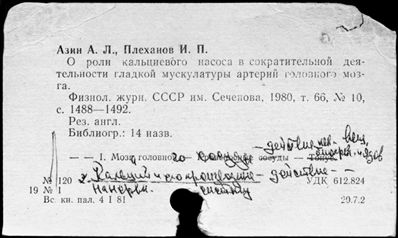 Азин А. Л., Плеханов И. П.
О роли кальциевого насоса в сократительной дея-
тельности гладкой мускулатуры артерий головного моз-
га.
Физиол. журн. СССР им. Сеченова, 1980, т. 66, № 10,
с. 1488—1492.
Рез. англ.
Библиогр.: 14 назв.
— — 1. Мозг головной сосуды — тонус.
№ 120 2. Кальций — действие — УДК 612.824
19 № 1
Вс. кн. пал. 4 1 81 29.7.2